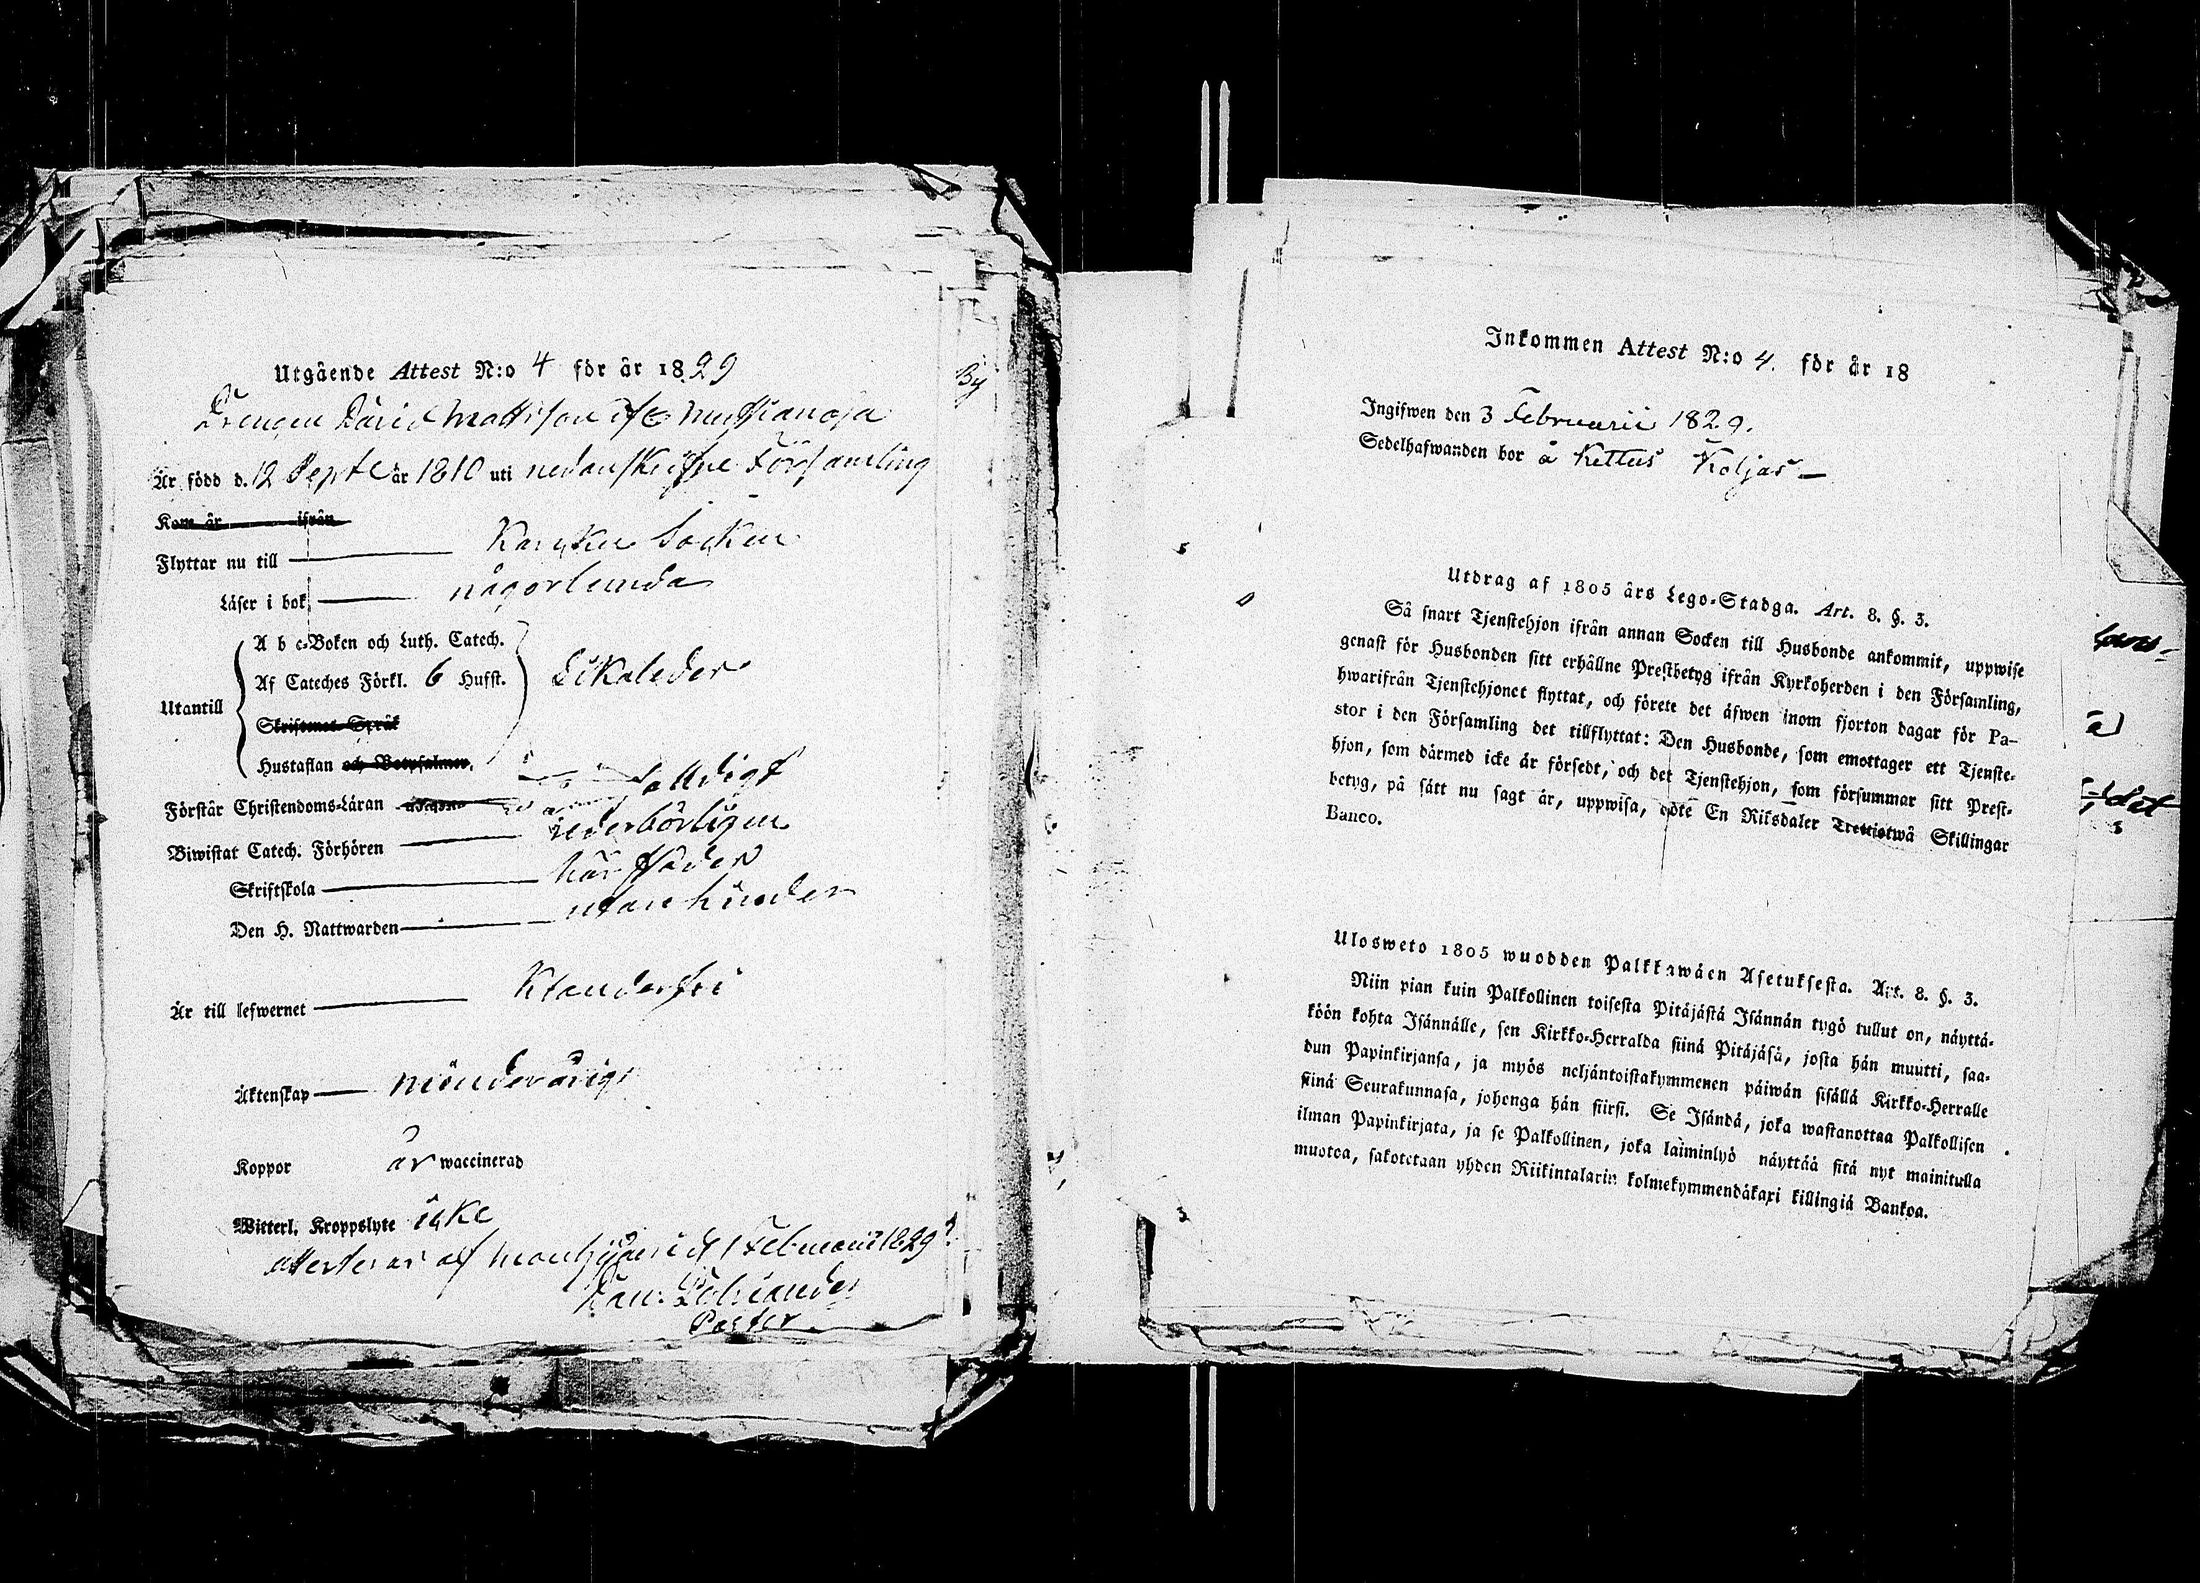 Utgående Attest N:o 4 för år 1829
Drengen David Mattsson ifr Mustianoja
Är född d. 12 Septr år 1810 uti nedanskrifne Församling
Kom år ifrån
Flyttar nu till Karuku Socken
Läser i bok någorlunda
A b c-Boken och Luth. Catech.
Af Cateches Förkl. 6 Hufst. Likaledes
Utantill
Skriftenes Språk
Hustaflan och Botpsalmer.
Förstår Christendoms-Läran
Biwistat Catech. Förhören wederbörligen
Skriftskola härstädes
Den H. Nattwarden utan hinder
Är till lefwernet Klanderfri
Äktenskap minderårig
Koppor är waccinerad
Witterl. Kroppslyte icke
attesteras af Mouhijärvi d. 1 Februarii 1829
Pastor
By
Inkommen Attest N:o 4. för år 18
Ingifwen den 3 Februarii 1829.
Sedelhafwanden bor å Kettus Koljas
Utdrag af 1805 års Lego-Stadga. Art. 8. §. 3.
Så snart Tjenstehjon ifrån annan Socken till Husbonde ankommit, uppwise
genast för Husbonden sitt erhållne Prestbetyg ifrån Kyrkoherden i den Församling,
hwarifrån Tjenstehjonet flyttat, och förete det äfwen inom fjorton dagar för Pa-
stor i den Församling det tillflyttat: Den Husbonde, som emottager ett Tjenste-
hjon, som därmed icke är försedt, och det Tjenstehjon, som försummar sitt Prest-
betyg, på sätt nu sagt är, uppwisa, böte En Riksdaler Trettiotwå Skillingar
Banco.
Ulosweto 1805 wuodden Palkkawäen Asetuksesta. Art. 8. §. 3.
Niin pian kuin Palkollinen toisesta Pitäjästä Isännän tygö tullut on, näyttä-
köön kohta Isännälle, sen Kirkko-Herralda siinä Pitäjäsä, josta hän muutti, saa-
dun Papinkirjansa, ja myös neljäntoistakymmenen päiwän sisällä Kirkko-Herralle
siinä Seurakunnasa, johonga hän siirsi. Se Isändä, joka wastanottaa Palkollisen
ilman Papinkirjata, ja se Palkollinen, joka laiminlyö näyttää sitä nyt mainitulla
muotoa, sakotetaan yhden Riikintalarin kolmekymmendäkaxi killingiä Bankoa.